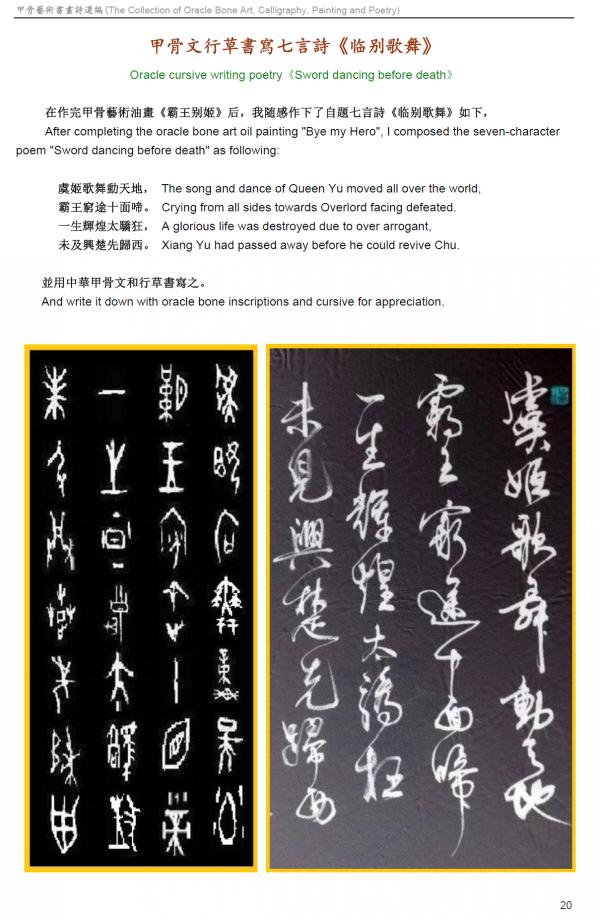 甲骨藝術書畫詩選編(The Collection of Oracle Bone Art, Calligraphy, Painting and Poetry)
甲骨文行草書寫七言詩《临别歌舞》
Oracle cursive writing poetry《Sword dancing before death》
在作完甲骨藝術油畫《霸王别姬》后，我随感作下了自題七言詩《临别歌舞》如下，
After completing the oracle bone art oil painting "Bye my Hero", I composed the seven-character
poem "Sword dancing before death" as following:
虞姬歌舞動天地， The song and dance of Queen Yu moved all over the world,
霸王窮途十面啼。 Crying from all sides towards Overlord facing defeated.
一生輝煌太驕狂， A glorious life was destroyed due to over arrogant,
未及興楚先歸西。 Xiang Yu had passed away before he could revive Chu.
並用中華甲骨文和行草書寫之。
And write it down with oracle bone inscriptions and cursive for appreciation.
虞姬歌舞動天地
霸王窮途十面啼
一生輝煌太驕狂
未見興楚先歸西
20